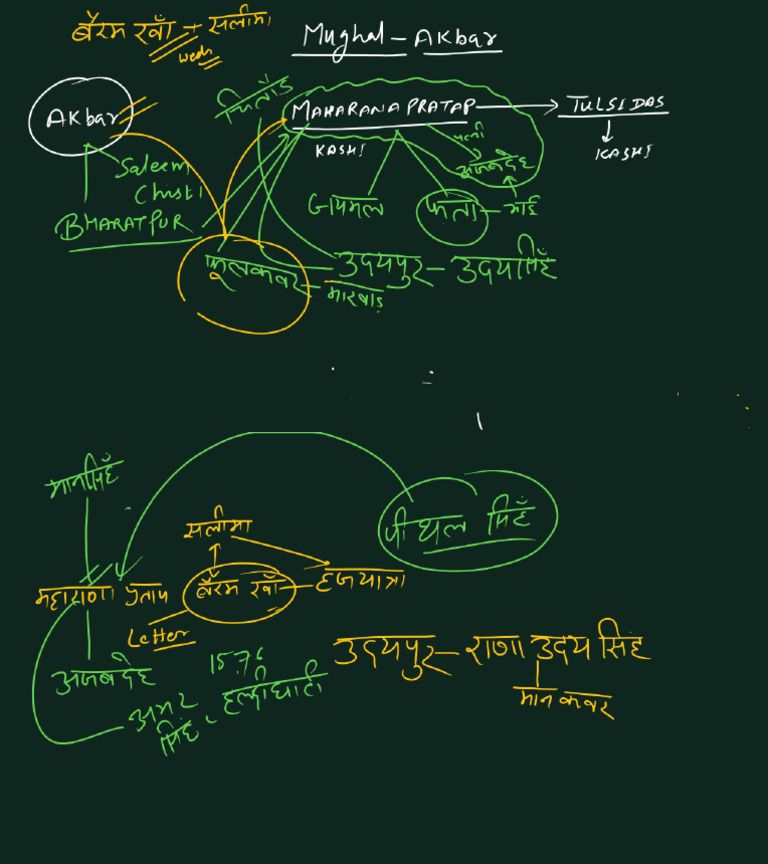 बैरम खाँ + सलीमा
Mughal - Akbar
Akbar
चित्तौड़
MAHARANA PRATAP
TULSIDAS
KASHI
KASHI
पत्नी
अजबदेह
Saleem
Chisti
जयमल
फत्ता - भाई
BHARATPUR
फूलकवर - मारवाड़
उदयपुर - उदयसिंह
मानसिंह
पीथल सिंह
सलीमा
महाराणा प्रताप
बैरम खाँ - हजयात्रा
Letter
1576
हल्दीघाटी
अजबदेह
अमर सिंह
उदयपुर - राणा उदय सिंह
मानकवर